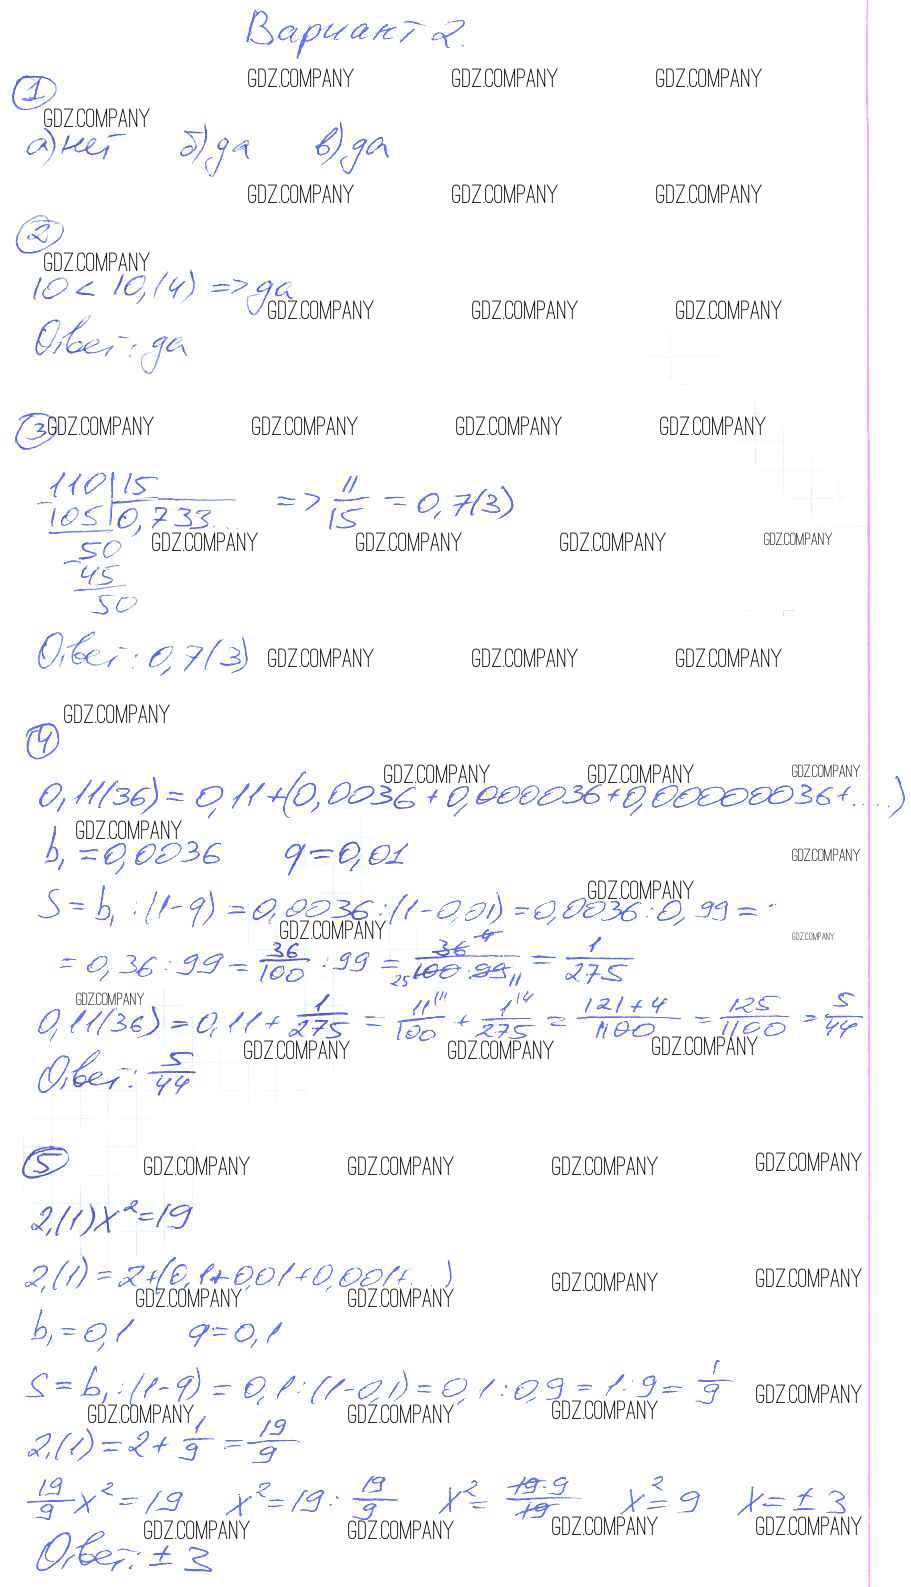 Вариант 2.
GDZ.COMPANY GDZ.COMPANY GDZ.COMPANY
1
GDZ.COMPANY
а) нет б) да в) да
GDZ.COMPANY GDZ.COMPANY GDZ.COMPANY
2
GDZ.COMPANY
10 < 10,(4) => да
GDZ.COMPANY GDZ.COMPANY GDZ.COMPANY
Ответ: да
3 GDZ.COMPANY GDZ.COMPANY GDZ.COMPANY GDZ.COMPANY
110 | 15
- 105 | 0,733... => 11/15 = 0,7(3)
GDZ.COMPANY GDZ.COMPANY GDZ.COMPANY GDZ.COMPANY
50
- 45
50
Ответ: 0,7(3) GDZ.COMPANY GDZ.COMPANY GDZ.COMPANY
GDZ.COMPANY
4
GDZ.COMPANY GDZ.COMPANY GDZ.COMPANY
0,11(36) = 0,11 + (0,0036 + 0,000036 + 0,00000036 + ....)
GDZ.COMPANY
b₁ = 0,0036 q = 0,01 GDZ.COMPANY
GDZ.COMPANY
S = b₁ : (1 - q) = 0,0036 : (1 - 0,01) = 0,0036 : 0,99 =
GDZ.COMPANY GDZ.COMPANY
= 0,36 : 99 = 36/100 : 99 = 36 4/25 100 · 99 11 = 1/275
GDZ.COMPANY
0,11(36) = 0,11 + 1/275 = 11/100 11 + 1/275 4 = 121 + 4/1100 = 125/1100 = 5/44
GDZ.COMPANY GDZ.COMPANY GDZ.COMPANY
Ответ: 5/44
5 GDZ.COMPANY GDZ.COMPANY GDZ.COMPANY GDZ.COMPANY
2,(1) x² = 19
2,(1) = 2 + (0,1 + 0,01 + 0,001 + ...) GDZ.COMPANY GDZ.COMPANY
GDZ.COMPANY GDZ.COMPANY
b₁ = 0,1 q = 0,1
S = b₁ : (1 - q) = 0,1 : (1 - 0,1) = 0,1 : 0,9 = 1 : 9 = 1/9 GDZ.COMPANY
GDZ.COMPANY GDZ.COMPANY GDZ.COMPANY
2,(1) = 2 + 1/9 = 19/9
19/9 x² = 19 x² = 19 : 19/9 x² = 19 · 9/19 x² = 9 x = ± 3
GDZ.COMPANY GDZ.COMPANY GDZ.COMPANY GDZ.COMPANY
Ответ: ± 3